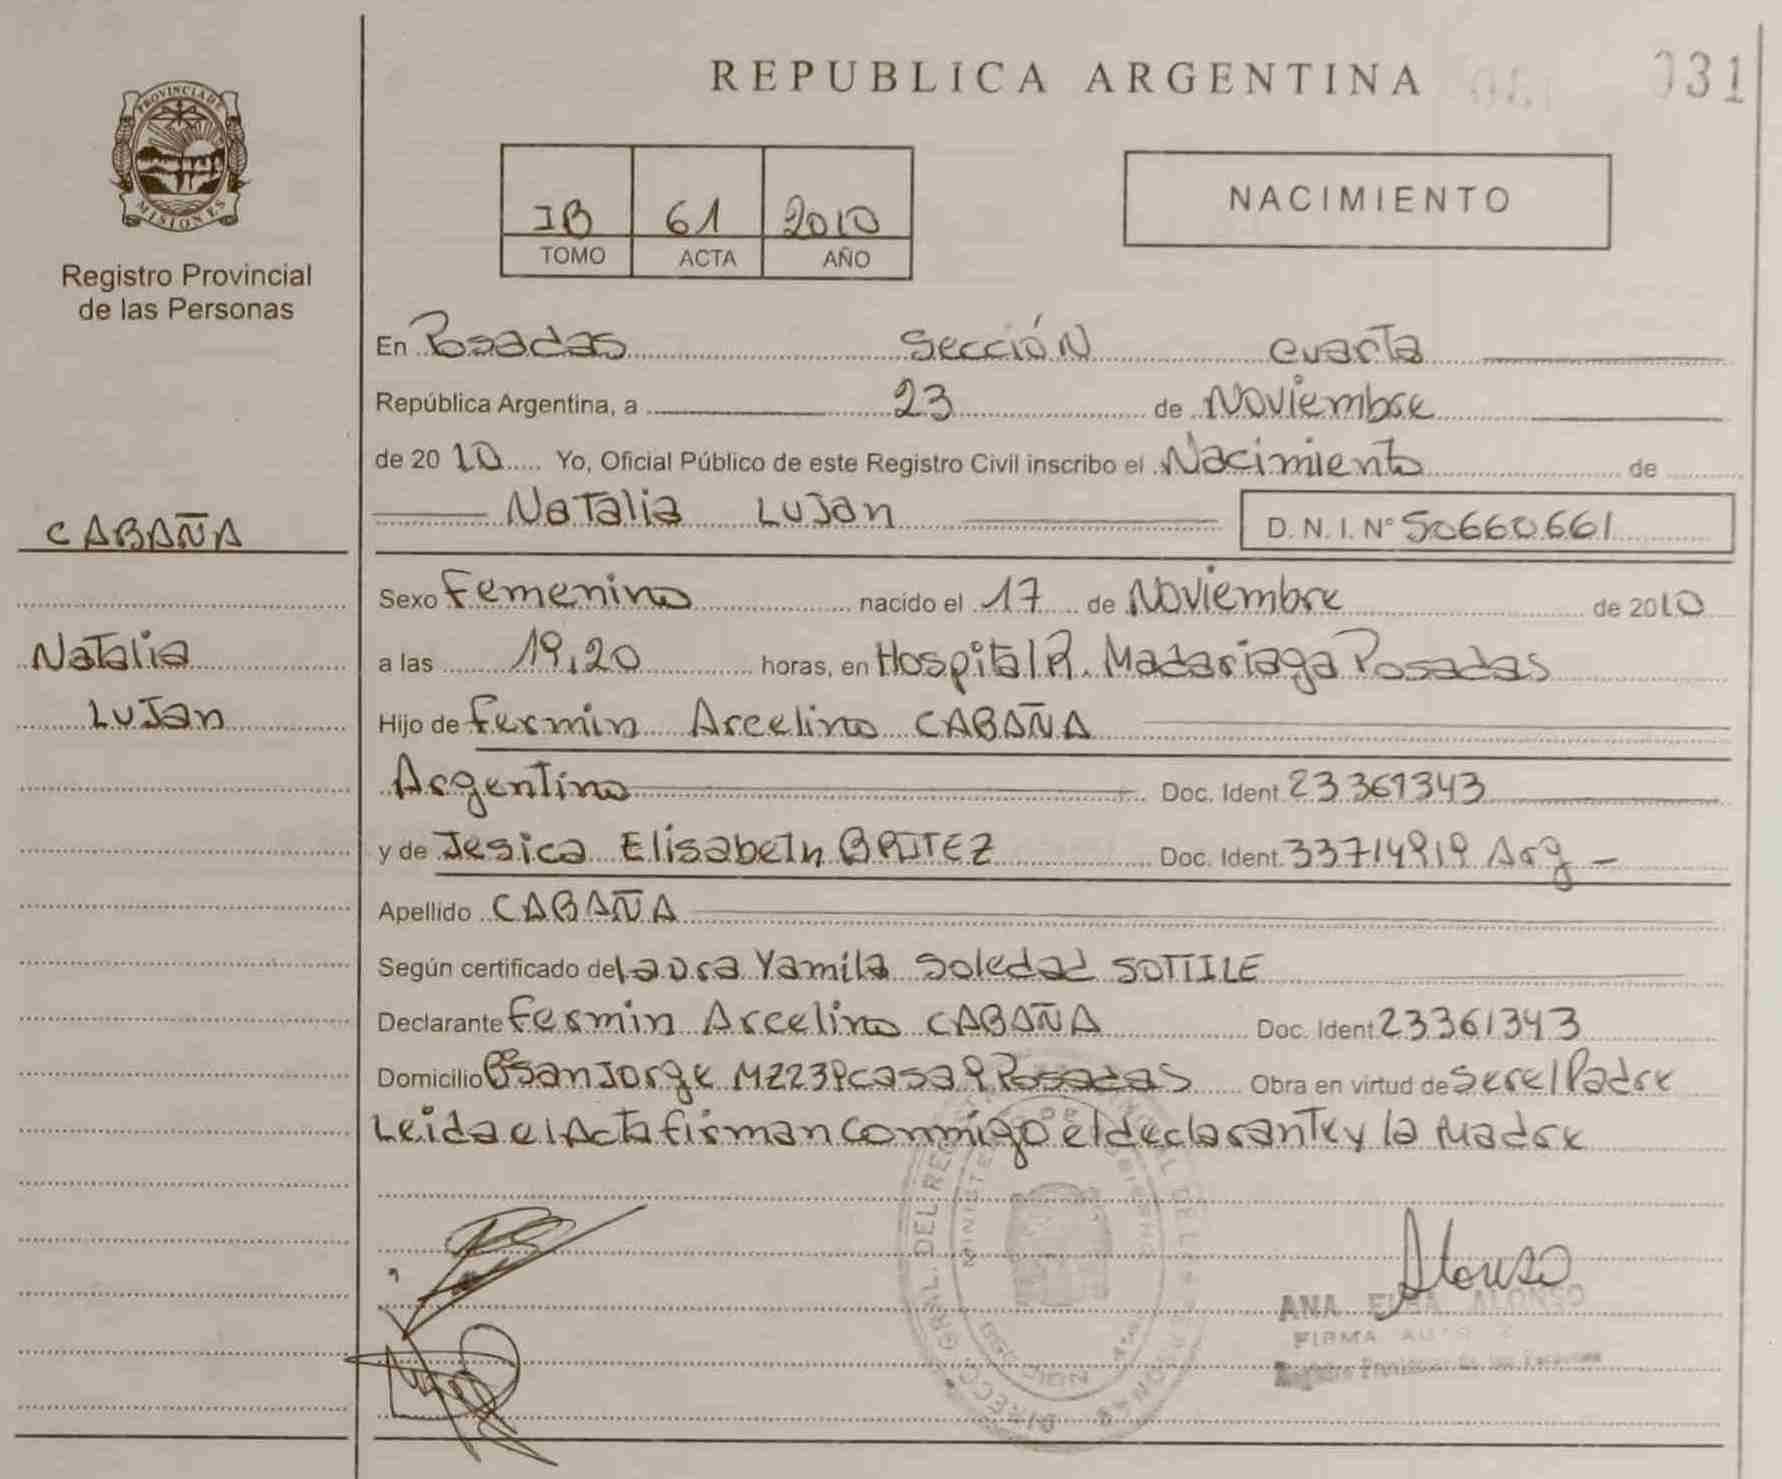 REPUBLICA ARGENTINA
031
PROVINCIA DE
MISIONES
Registro Provincial
de las Personas
IB 61 2010
TOMO ACTA AÑO
NACIMIENTO
En Posadas Sección cuarta
República Argentina, a 23 de Noviembre
de 2010 Yo, Oficial Público de este Registro Civil inscribo el Nacimiento de
Natalia Lujan D. N. I. N° 50660661
CABAÑA
Natalia
Lujan
Sexo Femenino nacido el 17 de Noviembre de 2010
a las 19,20 horas, en Hospital R. Madariaga Posadas
Hijo de Fermin Arcelino CABAÑA
Argentino Doc. Ident 23361343
y de Jesica Elisabeth BRITEZ Doc. Ident. 33714919 Arg -
Apellido CABAÑA
Según certificado de Laura Yamila Soledad SOTTILE
Declarante Fermin Arcelino CABAÑA Doc. Ident 23361343
Domicilio Bº San Jorge MZ23P casa 9 Posadas Obra en virtud de ser el Padre
Leida el Acta firman conmigo el declarante y la Madre
Alonso
ANA ELBA ALONSO
FIRMA
Registro Provincial de las Personas